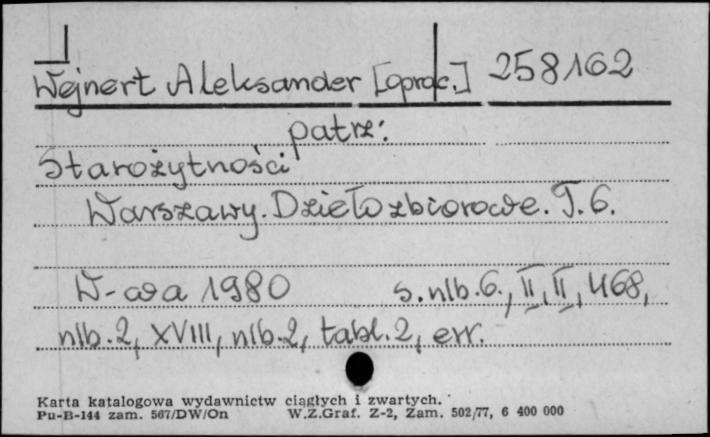 Wejnert Aleksander [oprac.] 258162
patrz:
Starożytności
Warszawy. Dzieło zbiorowe. T. 6.
W-wa 1980 s. nlb. 6., II, II, 468,
nlb. 2, XVIII, nlb. 2, tabl. 2, err.
Karta katalogowa wydawnictw ciągłych i zwartych.
Pu-B-144 zam. 567/DW/On W.Z.Graf. Z-2, Zam. 502/77, 6 400 000